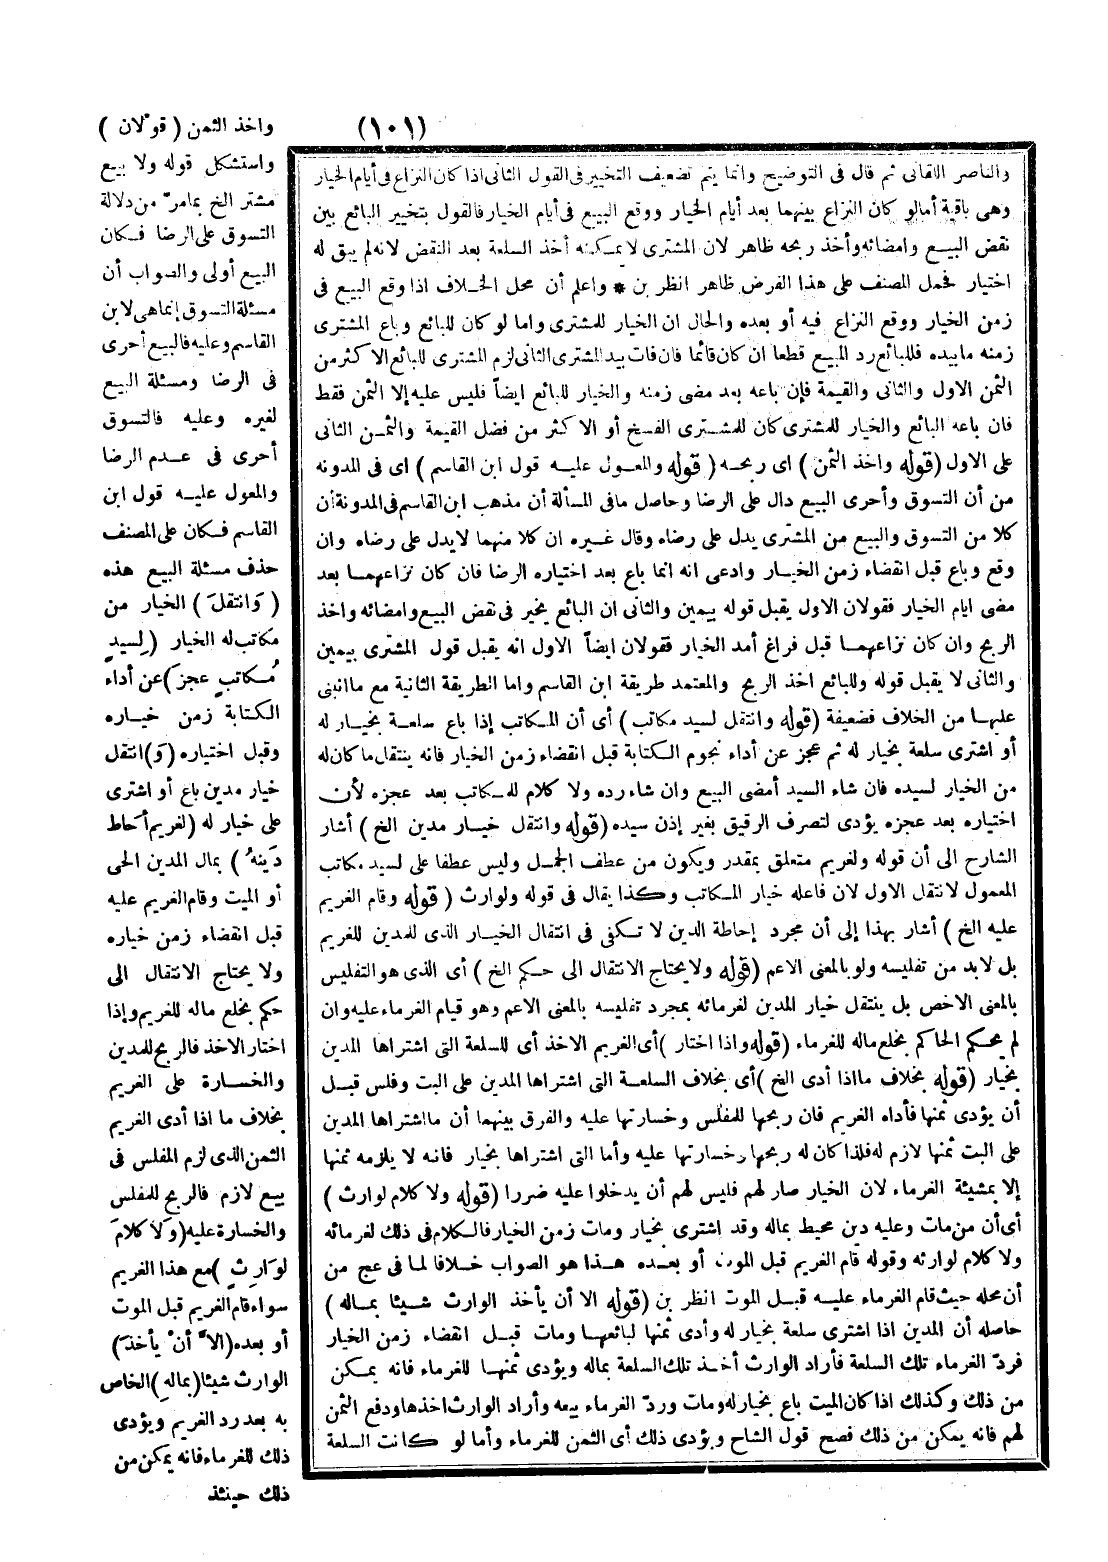 (١٠١)
واخذ الثمن ( قولان )
واستشكل قوله ولا بيع
مشتر الخ بمامر من دلالة
التسوق على الرضا فكان
البيع أولى والصواب أن
مسئلة التسوق إنما هى لابن
القاسم وعليه فالبيع أحرى
فى الرضا ومسئلة البيع
لغيره وعليه فالتسوق
أحرى فى عدم الرضا
والمعول عليه قول ابن
القاسم فكان على المصنف
حذف مسئلة البيع هذه
( وَانتقلَ ) الخيار من
مكاتب له الخيار (لِسيدِ
مُكاتبٍ عجز) عن أداء
الكتابة زمن خياره
وقبل اختياره (وَ)انتقل
خيار مدين باع أو اشترى
على خيار له (لغريم أحاط
دَينهُ ) بمال المدين الحى
أو الميت وقام الغريم عليه
قبل انقضاء زمن خياره
ولا يحتاج الانتقال الى
حكم بخلع ماله للغريم وإذا
اختار الاخذ فالربح للمدين
والخسارة على الغريم
بخلاف ما اذا أدى الغريم
الثمن الذى لزم المفلس فى
بيع لازم فالربح للمفلس
والخسارة عليه (وَلاَ كلامَ
لوَارِثٍ ) مع هذا الغريم
سواء قام الغريم قبل الموت
أو بعده (الاَّ أنْ يأخذَ )
الوارث شيئا (بمالهِ) الخاص
به بعد رد الغريم ويؤدى
ذلك للغرماء فانه يمكن من
ذلك حينئذ
والناصر اللقانى ثم قال فى التوضيح وانما يتم تضعيف التخيير فى القول الثانى اذا كان النزاع فى أيام الخيار
وهى باقية أمالو كان النزاع بينهما بعد أيام الخيار ووقع البيع فى أيام الخيار فالقول بتخيير البائع بين
نقض البيع وامضائه وأخذ ربحه ظاهر لان المشترى لا يمكنه أخذ السلعة بعد النقض لانه لم يبق له
اختيار فحمل المصنف على هذا الفرض ظاهر انظر بن * واعلم أن محل الخلاف اذا وقع البيع فى
زمن الخيار ووقع النزاع فيه أو بعده والحال ان الخيار للمشترى واما لو كان للبائع وباع المشترى
زمنه مابيده فللبائع رد المبيع قطعا ان كان قائما فان فات بيد المشترى الثانى لزم المشترى للبائع الاكثر من
الثمن الاول والثانى والقيمة فإن باعه بعد مضى زمنه والخيار للبائع ايضاً فليس عليه إلا الثمن فقط
فان باعه البائع والخيار للمشترى كان للمشترى الفسخ أو الاكثر من فضل القيمة والثمن الثانى
على الاول (قوله واخذ الثمن ) اى ربحه ( قوله والمعول عليه قول ابن القاسم ) اى فى المدونه
من أن التسوق وأحرى البيع دال على الرضا وحاصل مافى المسألة أن مذهب ابن القاسم فى المدونة أن
كلا من التسوق والبيع من المشترى يدل على رضاه وقال غيره ان كلا منهما لايدل على رضاه وان
وقع وباع قبل انقضاء زمن الخيار وادعى انه انما باع بعد اختياره الرضا فان كان نزاعهما بعد
مضى ايام الخيار فقولان الاول يقبل قوله بيمين والثانى ان البائع يخير فى نقض البيع وامضائه واخذ
الربح وان كان نزاعهما قبل فراغ أمد الخيار فقولان ايضاً الاول انه يقبل قول المشترى بيمين
والثانى لا يقبل قوله وللبائع اخذ الربح والمعتمد طريقة ابن القاسم واما الطريقة الثانية مع ماانبنى
عليها من الخلاف فضعيفة (قوله وانتقل لسيد مكاتب ) أى أن المكاتب إذا باع سلعة بخيار له
أو اشترى سلعة بخيار له ثم عجز عن أداء نجوم الكتابة قبل انقضاء زمن الخيار فانه ينتقل ما كان له
من الخيار لسيده فان شاء السيد أمضى البيع وان شاء رده ولا كلام للمكاتب بعد عجزه لأن
اختياره بعد عجزه يؤدى لتصرف الرقيق بغير إذن سيده (قوله وانتقل خيار مدين الخ ) أشار
الشارح الى أن قوله ولغريم متعلق بمقدر ويكون من عطف الجمل وليس عطفا على لسيد مكاتب
المعمول لانتقل الاول لان فاعله خيار المكاتب وكذا يقال فى قوله ولوارث ( قوله وقام الغريم
عليه الخ ) أشار بهذا إلى أن مجرد إحاطة الدين لا تكفى فى انتقال الخيار الذى للمدين للغريم
بل لابد من تفليسه ولو بالمعنى الاعم (قوله ولا يحتاج الانتقال الى حكم الخ ) أى الذى هو التفليس
بالمعنى الاخص بل ينتقل خيار المدين لغرمائه بمجرد تفليسه بالمعنى الاعم وهو قيام الغرماء عليه وان
لم يحكم الحاكم بخلع ماله للغرماء (قوله واذا اختار ) أى الغريم الاخذ أى للسلعة التى اشتراها المدين
بخيار (قوله بخلاف مااذا أدى الخ ) أى بخلاف السلعة التى اشتراها المدين على البت وفلس قبل
أن يؤدى ثمنها فأداه الغريم فان ربحها للمفلس وخسارتها عليه والفرق بينهما أن مااشتراها المدين
على البت ثمنها لازم له فلذا كان له ربحها وخسارتها عليه وأما التى اشتراها بخيار فانه لا يلزمه ثمنها
إلا بمشيئة الغرماء لان الخيار صار لهم فليس لهم أن يدخلوا عليه ضررا (قوله ولا كلام لوارث )
أى أن من مات وعليه دين محيط بماله وقد اشترى بخيار ومات زمن الخيار فالكلام فى ذلك لغرمائه
ولا كلام لوارثه وقوله قام الغريم قبل الموت أو بعده هذا هو الصواب خلافا لما فى عج من
أن محله حيث قام الغرماء عليه قبل الموت انظر بن (قوله الا أن يأخذ الوارث شيئا بماله )
حاصله أن المدين اذا اشترى سلعة بخيار له وأدى ثمنها لبائعها ومات قبل انقضاء زمن الخيار
فردّ الغرماء تلك السلعة فأراد الوارث أخذ تلك السلعة بماله ويؤدى ثمنها للغرماء فانه يمكن
من ذلك وكذلك اذا كان الميت باع بخيار له ومات وردّ الغرماء بيعه وأراد الوارث اخذها ودفع الثمن
لهم فانه يمكن من ذلك فصح قول الشاح ويؤدى ذلك أى الثمن للغرماء وأما لو كانت السلعة